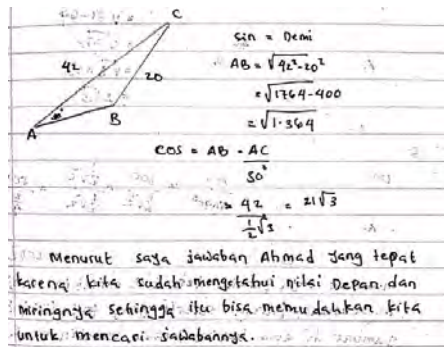 C
42
20
A
30°
B
sin = Demi
AB = √42²-20²
= √1764-400
= √1.364
cos = AB = AC
30°
= 42 = 21√3
½√3
Menurut saya jawaban Ahmad yang tepat
karena kita sudah mengetahui nilai Depan dan
miringnya sehingga itu bisa memudahkan kita
untuk mencari jawabannya.